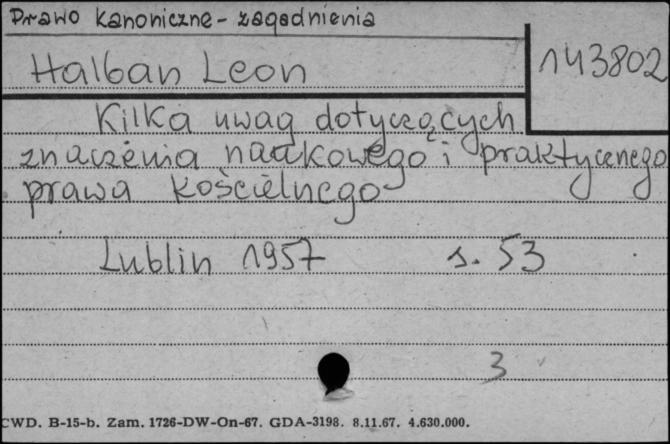 Prawo kanoniczne - zagadnienia
Halban Leon
143802
Kilka uwag dotyczących
znaczenia naukowego i praktycznego
prawa kościelnego
Lublin 1957 s. 53
3
CWD. B-15-b. Zam. 1726-DW-On-67. GDA-3198. 8.11.67. 4.630.000.